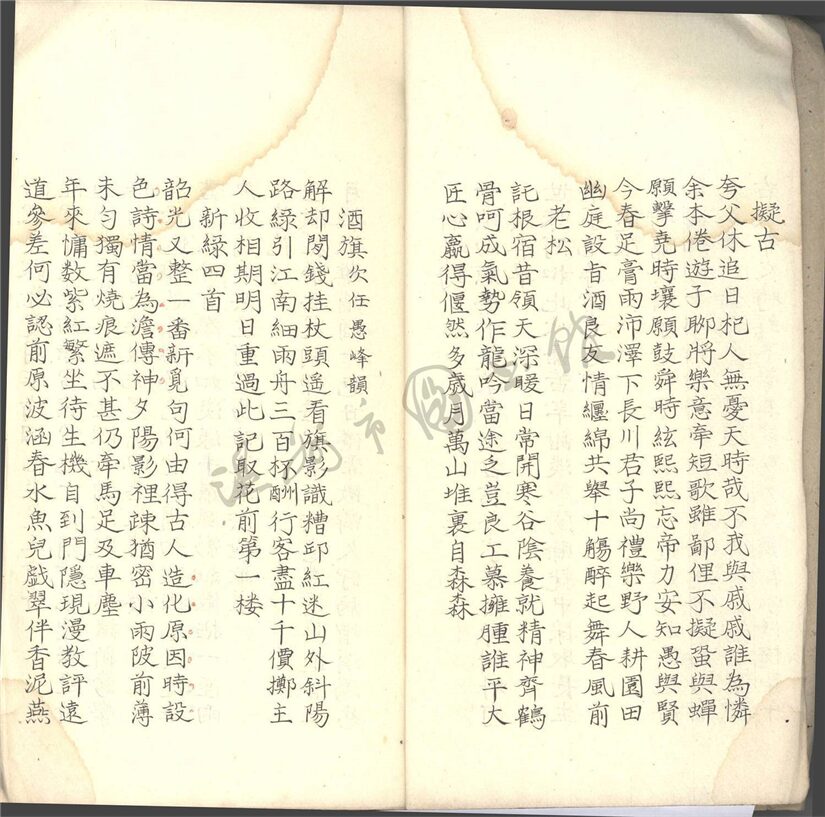 擬古
夸父休追日杞人無憂天時哉不我與戚戚誰為憐
余本倦遊子聊將樂意牽短歌雖鄙俚不擬蛩與蟬
願擊堯時壤願鼓舜時絃熙熙忘帝力安知愚與賢
今春足膏雨沛澤下長川君子尚禮樂野人耕園田
幽庭設旨酒良友情纏綿共舉十觴醉起舞春風前
老松
託根宿昔領天深暖日常開寒谷陰養就精神齊鶴
骨呵成氣勢作龍吟當途之豈良工慕擁腫誰平大
匠心贏得偃然多歲月萬山堆裏自森森
酒旗次任愚峰韻
解却閒錢挂杖頭遥看旗影識糟邱紅迷山外斜陽
路綠引江南細雨舟三百杯酬行客盡十千價擲主
人收相期明日重過此記取花前第一楼
新綠四首
韶光又整一番新覓句何由得古人造化原因時設
色詩情當為澹傳神夕陽影裡疎猶密小雨陂前薄
未勻獨有燒痕遮不甚仍牽馬足及車塵
年來慵數紫紅繁坐待生機自到門隱現漫教評遠
道參差何必認前原波涵春水魚兒戯翠伴香泥燕